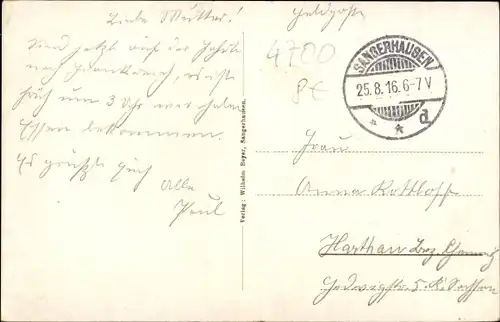 Liebe Mutter!
Sind jetzt auf der Fahrt
nach Frankreich, es ist
früh um 3 Uhr wir haben
Essen bekommen.
Es grüßt Euch
Alle
Paul
Verlag: Wilhelm Beyer, Sangerhausen.
Feldpost
4700
8€
SANGERHAUSEN
25.8.16.6-7V
* * d
Frau
Anna Rottloff
Harthau Bez. Chemnitz
Hedwigstr. 5. K. Sachsen